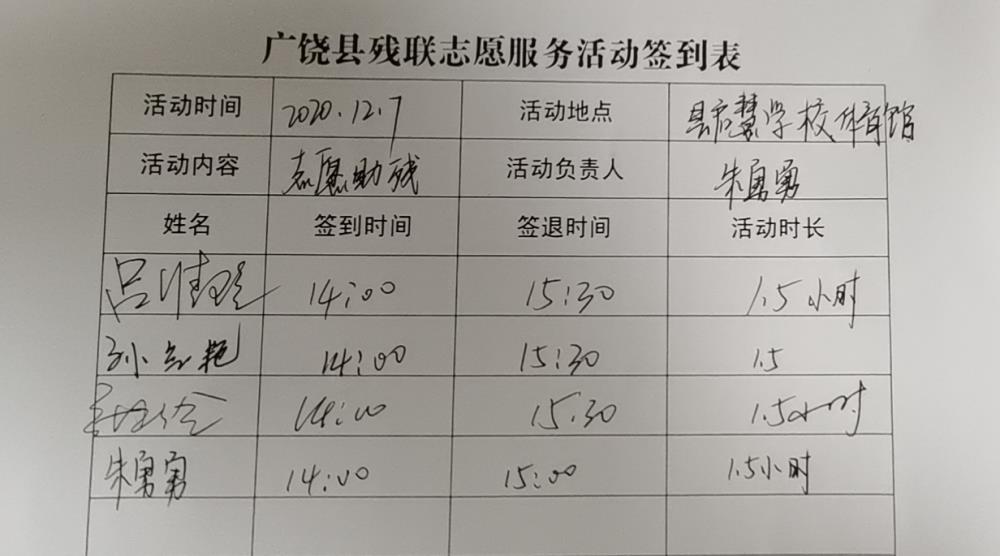 广饶县残联志愿服务活动签到表
活动时间 2020.12.7 活动地点 县启慧学校体育馆
活动内容 志愿助残 活动负责人 朱勇勇
姓名 签到时间 签退时间 活动时长
吕 14:00 15:30 1.5小时
孙红艳 14:00 15:30 1.5
14:00 15:30 1.5小时
朱勇勇 14:00 15:00 1.5小时